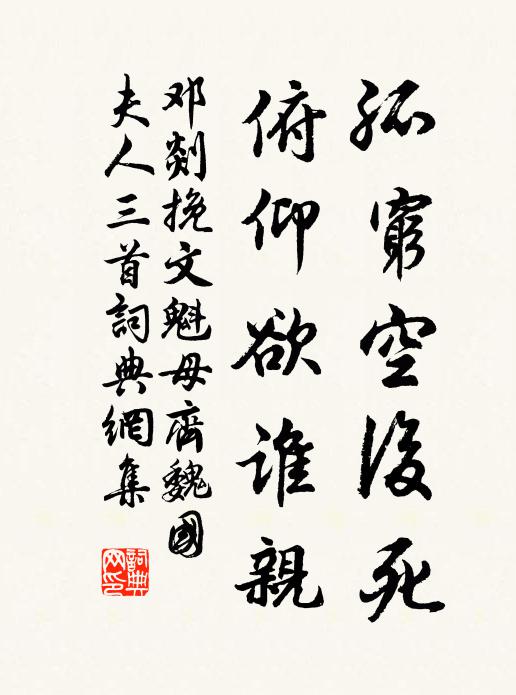 孤窮空後死
俯仰欲誰親
邓剡挽文魁母齊魏國
夫人三首詞典網集
詞典
网印